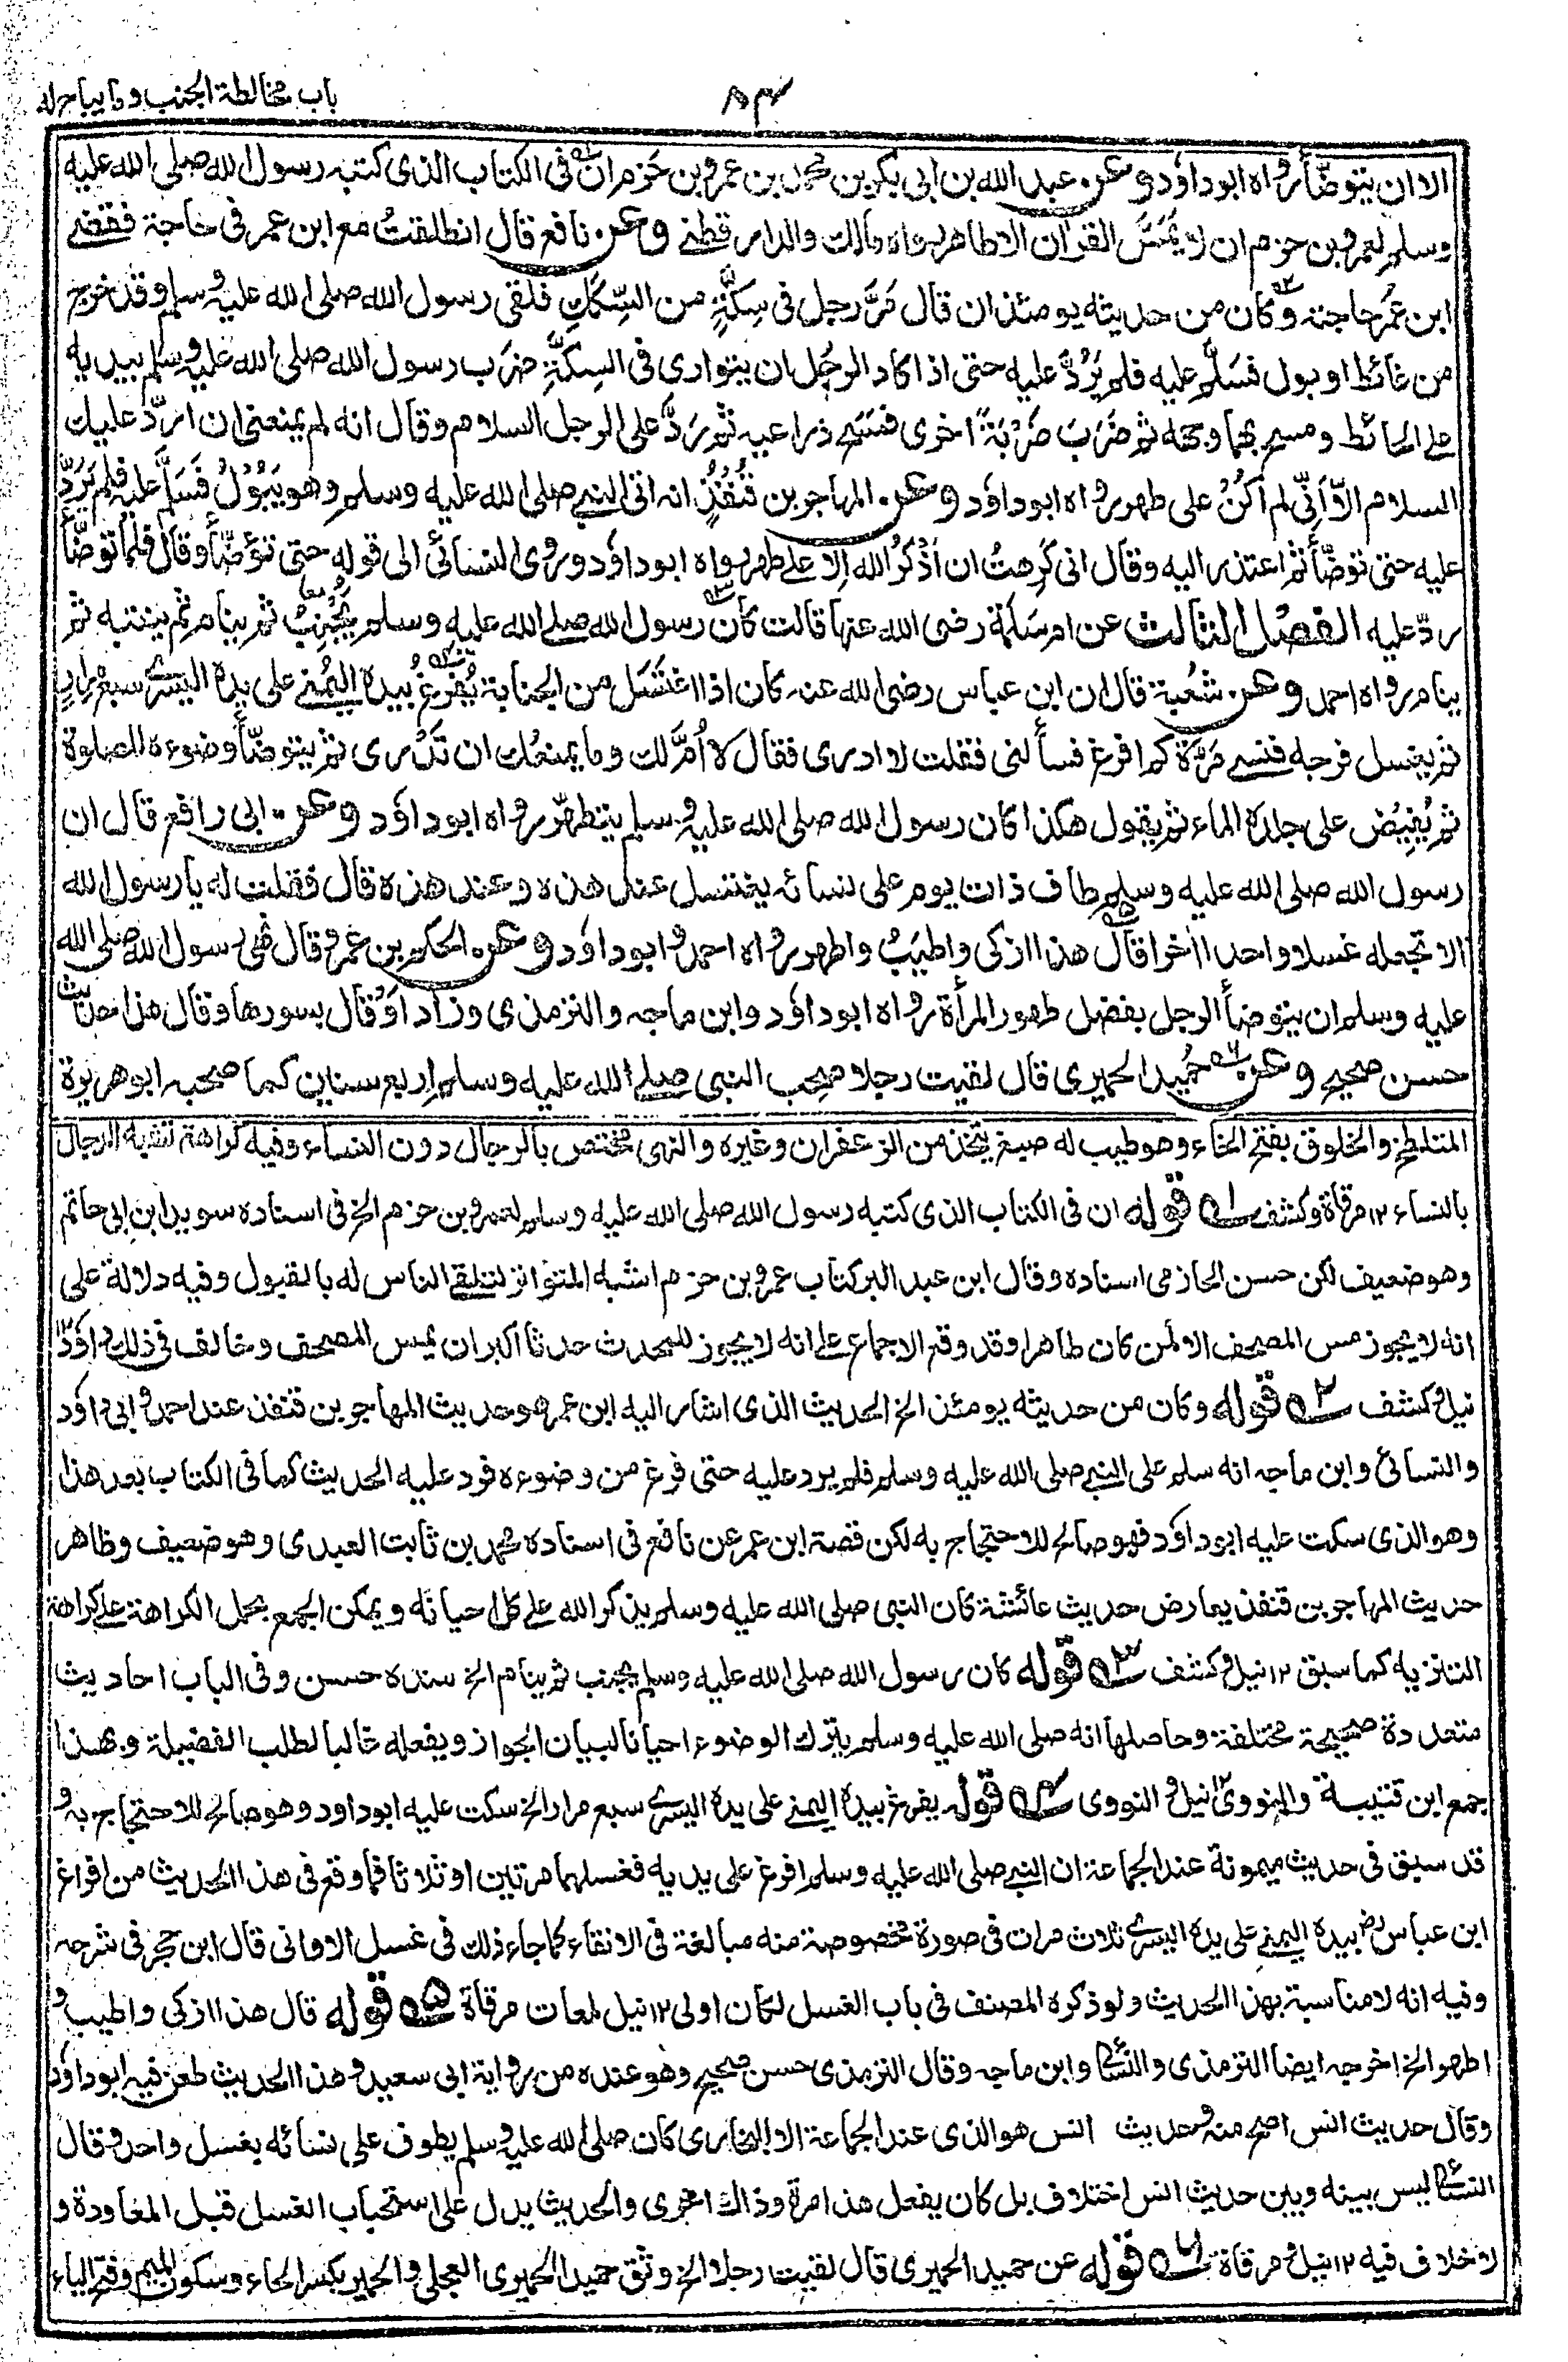 باب مخالطة الجنب وما يباح له
٨٣
الا ان يتوضّأ رواه ابو داود وعن عبد الله بن ابى بكر بن محمد بن عمرو بن حَزم ان فى الكتاب الذى كتبه رسول الله صلى الله عليه
وسلم لعمرو بن حزم ان لا يَمَسَّ القرآن الا طاهر رواه مالك والدارقطنى وعن نافع قال انطلقتُ مع ابن عمر فى حاجة فقضى
ابن عُمر حاجته وكان من حديثه يومئذ ان قال مَرَّ رجل فى سِكّةٍ من السِّكَكِ فلقى رسول الله صلى الله عليه وسلم وقد خرج
من غائط او بول فسَلَّم عليه فلم يَرُدَّ عليه حتى اذا كاد الرجُل ان يتوارى فى السِكّةِ ضرَب رسول الله صلى الله عليه وسلم بيديه
على الحائط ومسح بهما وجهه ثم ضَرَبَ ضَرْبَةً اخرى فمَسَح ذراعيه ثم رَدَّ على الرجل السلام وقال انه لم يمنعنى ان اردّ عليك
السلام الّا اَنّى لم اَكُنْ على طهر رواه ابو داود وعن المهاجر بن قُنْفُذٍ انه اتى النبى صلى الله عليه وسلم وهو يَبُوْلُ فَسَلَّم عليه فلم يَرُدّ
عليه حتى توضّأ ثم اعتذر اليه وقال انى كَرِهتُ ان اَذْكُرَ الله اِلا على طهر رواه ابو داود وروى النسائى الى قوله حتى توَضّأ وقال فلما توضّأ
ردّ عليه الفصل الثالث عن ام سَلَمة رضى الله عنها قالت كان رسول الله صلى الله عليه وسلم يُجْنِبُ ثم ينام ثم ينتبه ثم
ينام رواه احمد وعن شُعبة قال ان ابن عباس رضى الله عنه كان اذا اغتَسَل من الجنابة يُفرغُ بيده اليُمنى على يده اليسرى سبعَ مرارٍ
ثم يغسل فرجه فنسى مَرّة كم افرغ فسألنى فقلت لا ادرى فقال لا اُمَّ لك وما يمنعُك ان تَدْرى ثم يتوضّأ وضوءه للصلوة
ثم يُفِيْضُ على جلده الماء ثم يقول هكذا كان رسول الله صلى الله عليه وسلم يتطهّر رواه ابو داود وعن ابى رافع قال ان
رسول الله صلى الله عليه وسلم طاف ذات يوم على نسائه يغتسل عند هذه وعند هذه قال فقلت له يا رسول الله
الا تجعله غسلا واحدا اٰخرا قال هذا ازكى واطيَبُ واطهر رواه احمد وابو داود وعن الحكم بن عَمرو قال نهى رسول الله صلى الله
عليه وسلم ان يتوضأ الرجل بفضل طهور المرأة رواه ابو داود وابن ماجه والترمذى وزاد اَوْ قال بسورها وقال هذا حديث
حسن صحيح وعن حُميد الحميرى قال لقيت رجلا صَحِب النبى صلى الله عليه وسلم اربع سنين كما صحبه ابو هريرة
المتلطخ والخلوق بفتح الخاء وهو طيب له صبغ يتخذ من الزعفران وغيره والنهى مختص بالرجال دون النساء وفيه كراهة تشبه الرجال
بالنساء ١٢ مرقاة وكشف ١ قوله ان فى الكتاب الذى كتبه رسول الله صلى الله عليه وسلم لعمرو بن حزم الخ فى اسناده سويد ابن ابى حاتم
وهو ضعيف لكن حسن الحازمى اسناده وقال ابن عبد البر كتاب عمرو بن حزم اشبه المتواتر لتلقى الناس له بالقبول وفيه دلالة على
انه لا يجوز مس المصحف الا لمن كان طاهرا وقد وقع الاجماع على انه لا يجوز للمحدث حدثا اكبر ان يمس المصحف وخالف فى ذلك داود ١٢
نيل وكشف ٢ قوله وكان من حديثه يومئذ الخ الحديث الذى اشار اليه ابن عمر هو حديث المهاجر بن قنفذ عند احمد وابى داود
والنسائى وابن ماجه انه سلم على النبى صلى الله عليه وسلم فلم يرد عليه حتى فرغ من وضوءه فرد عليه الحديث كما فى الكتاب بعد هذا
وهو الذى سكت عليه ابو داود فهو صالح للاحتجاج به لكن قصة ابن عمر عن نافع فى اسناده محمد بن ثابت العبدى وهو ضعيف وظاهر
حديث المهاجر بن قنفذ يعارض حديث عائشة كان النبى صلى الله عليه وسلم يذكر الله على كل احيانه ويمكن الجمع بحمل الكراهة على كراهة
التنزيه كما سبق ١٢ نيل وكشف ٣ قوله كان رسول الله صلى الله عليه وسلم يجنب ثم ينام الخ سنده حسن وفى الباب احاديث
متعددة صحيحة مختلفة وحاصلها انه صلى الله عليه وسلم يترك الوضوء احيانا لبيان الجواز ويفعله غالبا لطلب الفضيلة وبهذا
جمع ابن قتيبة والنووى ١٢ نيل والنووى ٤ قوله يفرغ بيده اليمنى على يده اليسرى سبع مرار الخ سكت عليه ابو داود وهو صالح للاحتجاج به و
قد سبق فى حديث ميمونة عند الجماعة ان النبى صلى الله عليه وسلم افرغ على يديه فغسلهما مرتين او ثلاثا فما وقع فى هذا الحديث من افراغ
ابن عباس رض بيده اليمنى على يده اليسرى ثلاث مرات فى صورة مخصوصة منه مبالغة فى الانقاء كما جاء ذلك فى غسل الاوانى قال ابن حجر فى شرحه
وفيه انه لا مناسبة بهذا الحديث ولو ذكره المصنف فى باب الغسل لكان اولى ١٢ نيل لمعات مرقاة ٥ قوله قال هذا ازكى واطيب و
اطهر الخ اخرجه ايضا الترمذى والنسائى وابن ماجه وقال الترمذى حسن صحيح وهو عنده من رواية ابى سعيد وهذا الحديث طعن فيه ابو داود
وقال حديث انس اصح منه وحديث انس هو الذى عند الجماعة الا البخارى كان صلى الله عليه وسلم يطوف على نسائه بغسل واحد وقال
النسائى ليس بينه وبين حديث انس اختلاف بل كان يفعل هذا مرة وذاك اخرى والحديث يدل على استحباب الغسل قبل المعاودة و
لا خلاف فيه ١٢ نيل ومرقاة ٦ قوله عن حميد الحميرى قال لقيت رجلا الخ وثق حميدا الحميرى العجلى والحمير بكسر الحاء وسكون الميم وفتح الياء